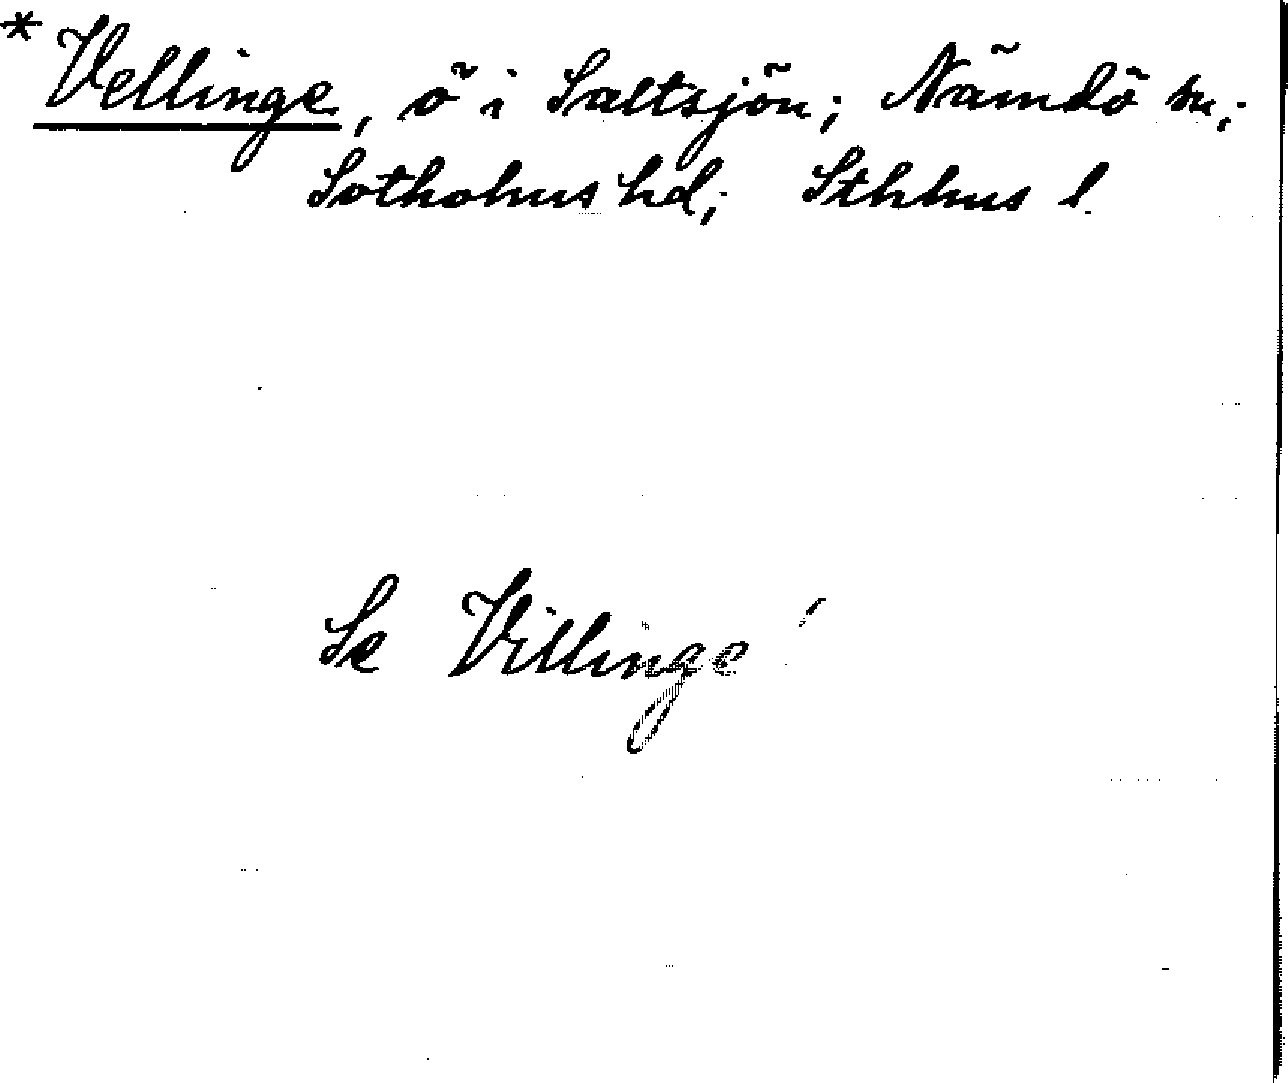 * Vellinge, ö i Saltsjön; Nämdö sn;
Sotholms hd; Sthlms l
Se Villinge!